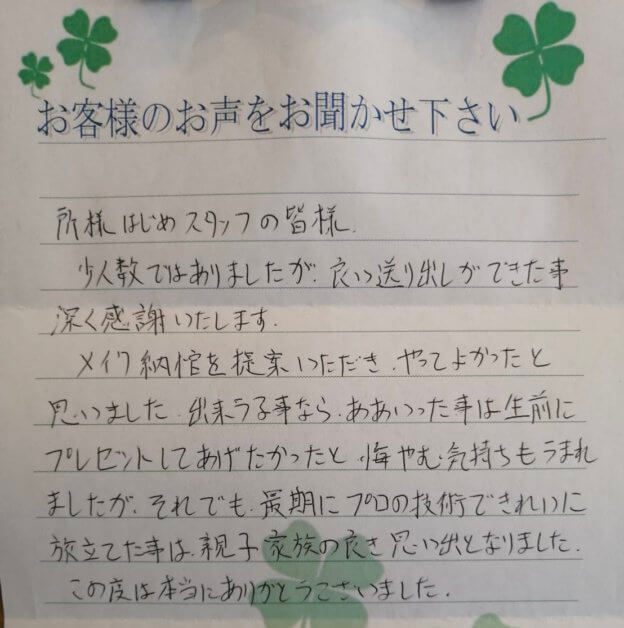 お客様のお声をお聞かせ下さい
所様はじめスタッフの皆様.
少人数ではありましたが、良い送り出しができた事
深く感謝いたします.
メイク納棺を提案いただき、やってよかったと
思いました。出来うる事なら、ああいった事は生前に
プレゼントしてあげたかったと、悔やむ気持ちもうまれ
ましたが、それでも、最期にプロの技術できれいに
旅立てた事は、親子家族の良き思い出となりました.
この度は本当にありがとうございました.